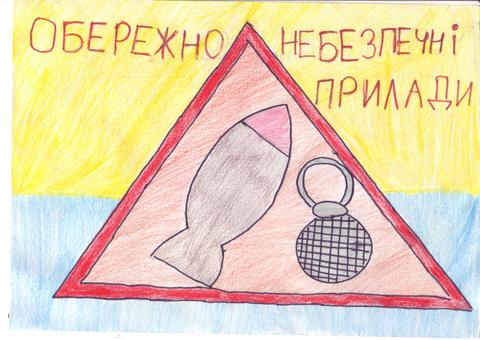 ОБЕРЕЖНО НЕБЕЗПЕЧНІ
ПРИЛАДИ